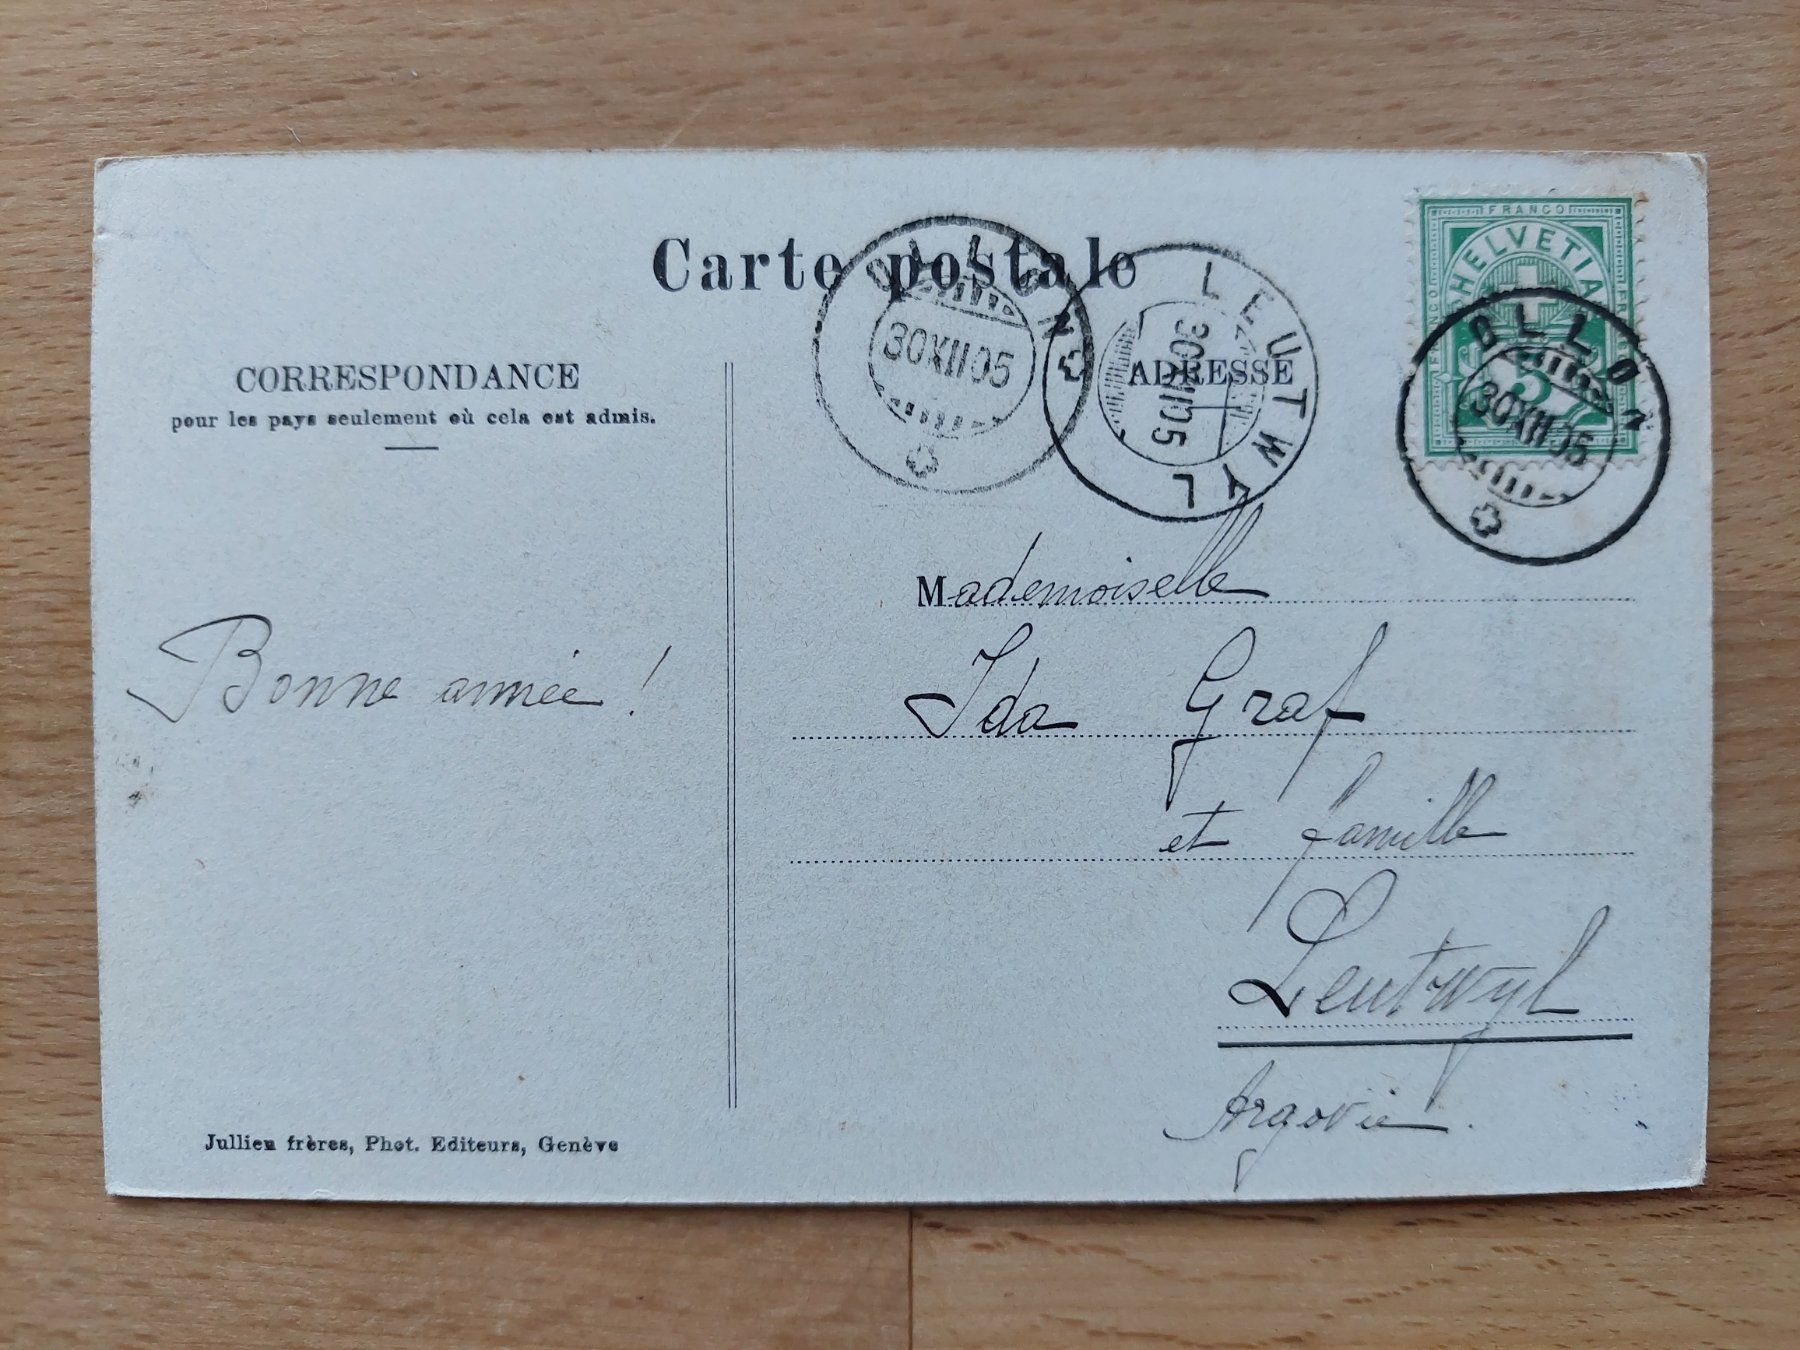 Carte postale
FRANCO
HELVETIA
FRANCO
5
OLLON
30 XII 05
LEUTWYL
30 XII 05
OLLON
30 XII 05
CORRESPONDANCE
pour les pays seulement où cela est admis.
ADRESSE
Bonne année !
Mademoiselle
Ida Graf
et famille
Leutwyl
Argovie.
Jullien frères, Phot. Editeurs, Genève